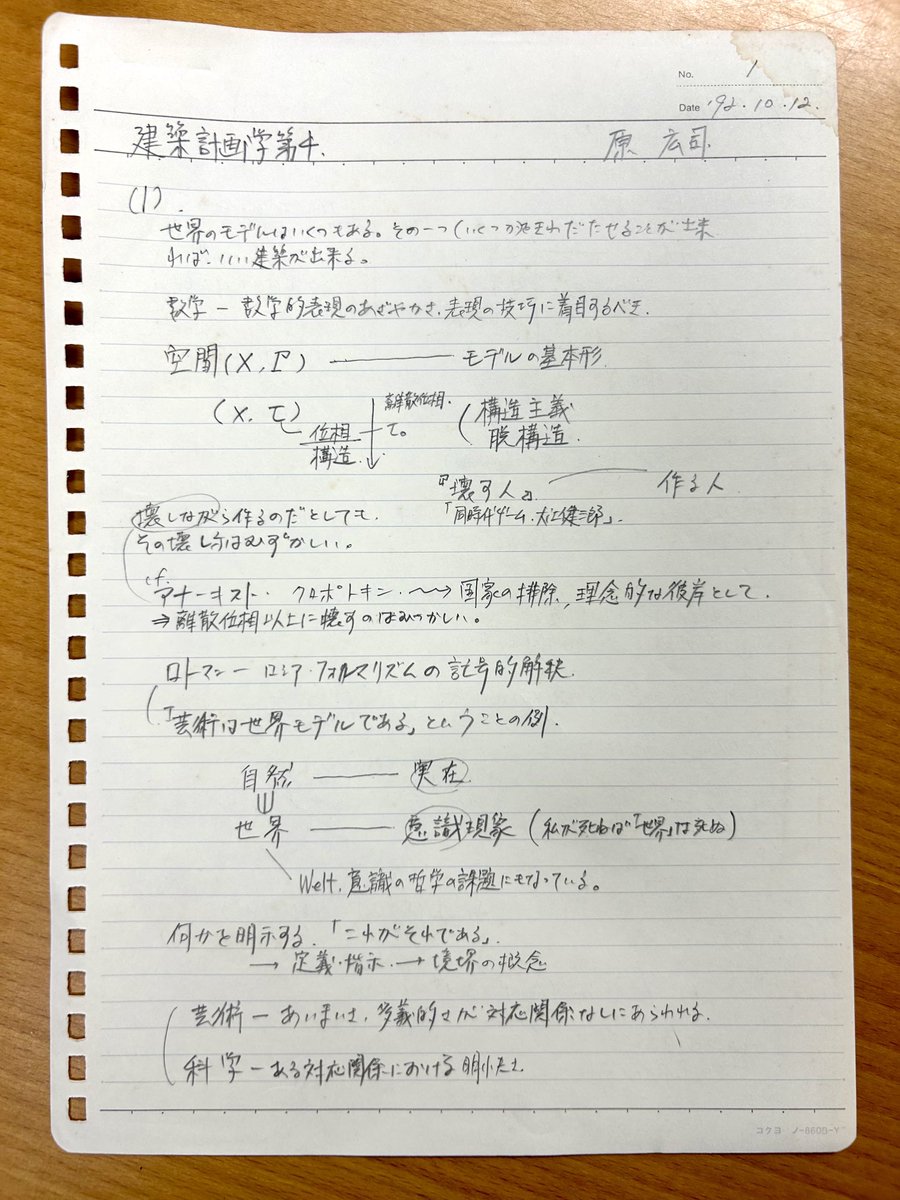 No. 1
Date '92.10.12.
建築計画学第4. 原 広司
(1).
世界のモデルはいくつもある。その一つ(いくつか)をきわだたせることが出来
れば、いい建築が出来る。
数学 ― 数学的表現のあざやかさ、表現の技巧に着目するべき.
空間(X, Γ) ――― モデルの基本形.
(X, τ) 離散位相. (構造主義
位相 τ。 脱構造.
構造.
『壊す人』 ――― 作る人
「同時代ゲーム・大江健三郎」.
壊しながら作るのだとしても、
その壊し方はむずかしい。
cf.
アナーキスト・クロポトキン・〜→ 国家の排除, 理念的な彼岸として.
⇒ 離散位相以上に壊すのはむつかしい。
ロトマン ― ロシア・フォルマリズムの記号的解釈.
「芸術は世界モデルである」ということの例.
自然 ――― 実在
世界 ――― 意識現象 (私が死ねば「世界」は死ぬ)
Welt, 意識の哲学の課題にもなっている。
何かを明示する.「これがそれである」.
→ 定義・指示 → 境界の概念
芸術 ― あいまいさ, 多義的さが対応関係なしにあらわれる.
科学 ― ある対応関係における明
コクヨ ノ-860B-Y